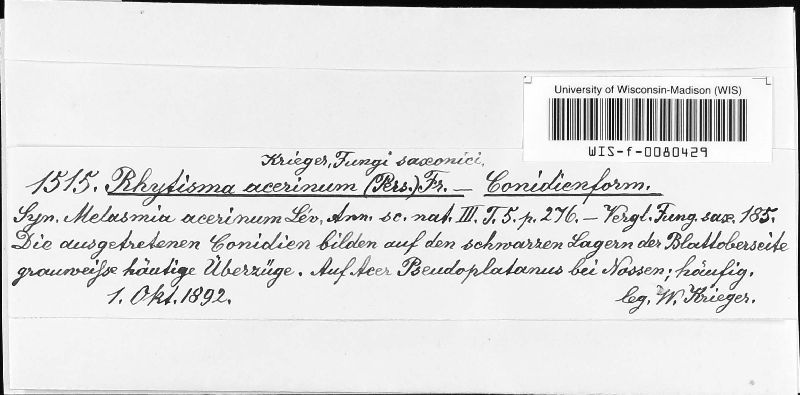 University of Wisconsin-Madison (WIS)
WIS-f-0080429
Krieger, Fungi saxonici.
1515. Rhytisma acerinum (Pers.) Fr. — Conidienform.
Syn. Melasmia acerinum Lév. Ann. sc. nat. III. T. 5. p. 276. — Vergl. Fung. sax. 185.
Die ausgetretenen Conidien bilden auf den schwarzen Lagern der Blattoberseite
grauweiße häutige Überzüge. Auf Acer Pseudoplatanus bei Nossen; häufig.
1. Okt. 1892. leg. W. Krieger.